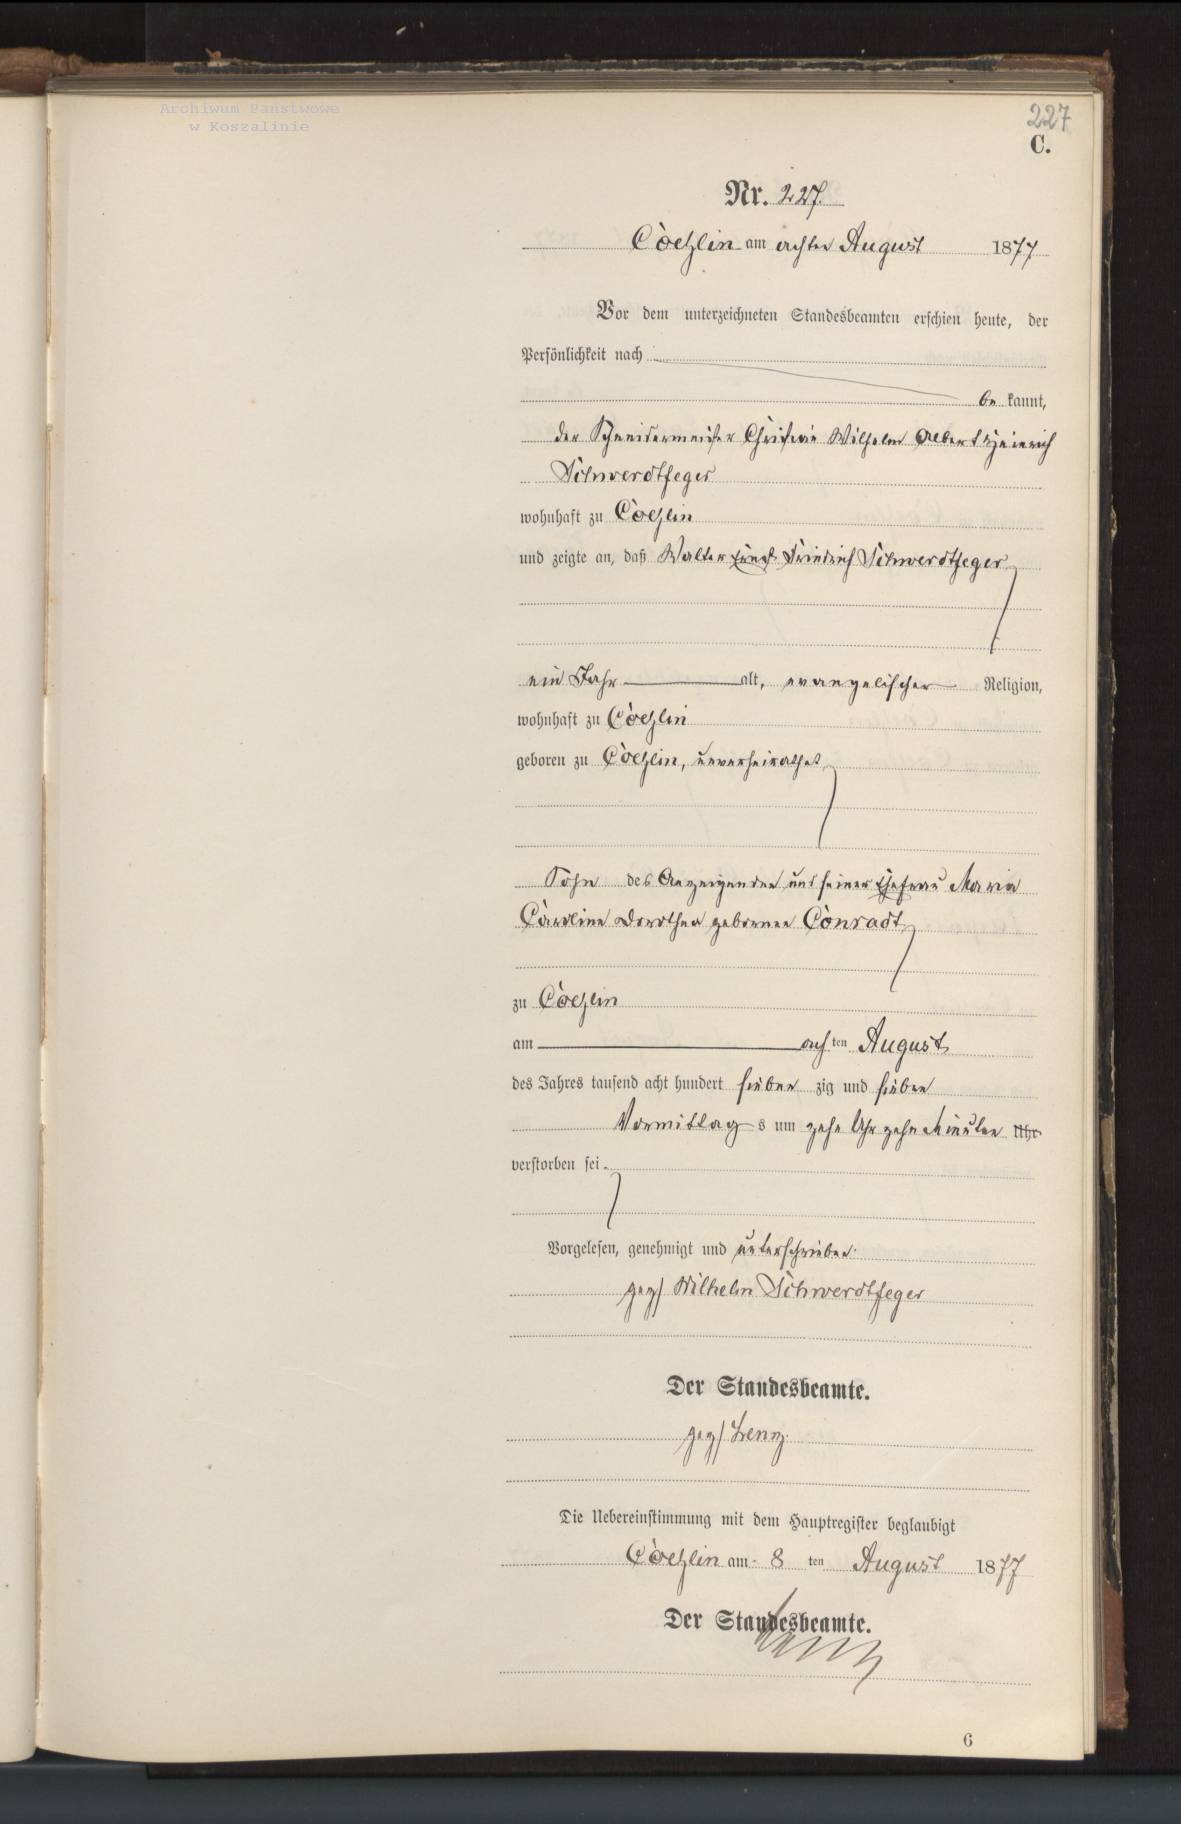 Archiwum Państwowe
w Koszalinie
227
C.
Nr. 227.
Coeslin am achten August 1877
Vor dem unterzeichneten Standesbeamten erschien heute, der
Persönlichkeit nach
be kannt,
der Schneidermeister Christian Wilhelm Albert Heinrich
Schwerdtfeger
wohnhaft zu Coeslin
und zeigte an, daß Walter Ernst Friedrich Schwerdtfeger
ein Jahr alt, evangelischer Religion,
wohnhaft zu Coeslin
geboren zu Coeslin, unverheirathet
Sohn des Anzeigenden und seiner Ehefrau Maria
Caroline Dorothea geborenen Conradt
zu Coeslin
am achten August
des Jahres tausend acht hundert sieben zig und sieben
Vormittag s um zehn Uhr zehn Minuten Uhr
verstorben sei.
Vorgelesen, genehmigt und unterschrieben.
gez/ Wilhelm Schwerdtfeger
Der Standesbeamte.
gez/ Lenz.
Die Uebereinstimmung mit dem Hauptregister beglaubigt
Coeslin am 8 ten August 1877
Der Standesbeamte.
Lenz
6